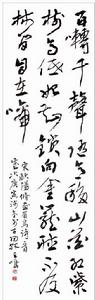 百轉千聲隨意移山花紅紫
樹高低始知鎖向金籠聽不及
林間自在啼
宋歐陽修畫眉鳥詩